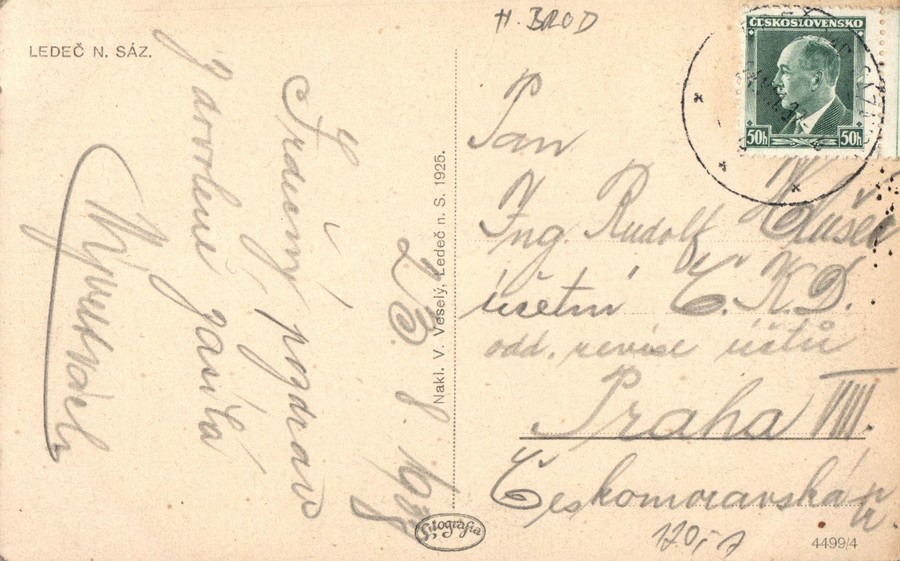 LEDEČ N. SÁZ.
H. BROD
ČESKOSLOVENSKO
50h 50h
Srdečný pozdrav
z dovolené zasílá
23. 8.
Nakl. V. Veselý, Ledeč n. S. 1925.
Pan
Ing. Rudolf
účetní Č.K.D.
odd. revise účtů
Praha VIII
Českomoravská
Grafografia
170,-
4499/4